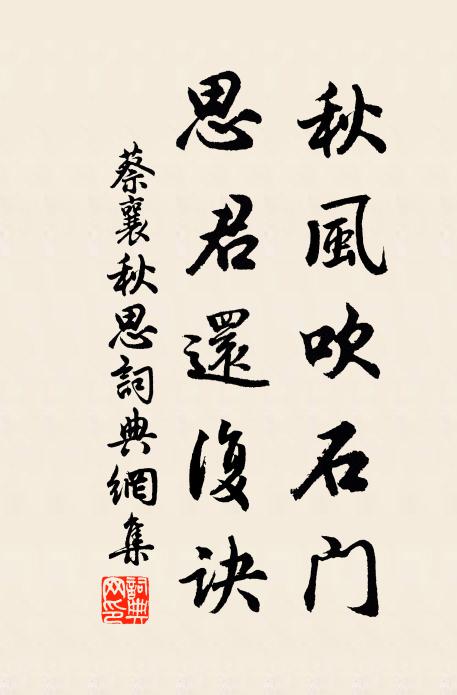 秋風吹石門
思君還復訣
蔡襄秋思詞典網集
詞典網印